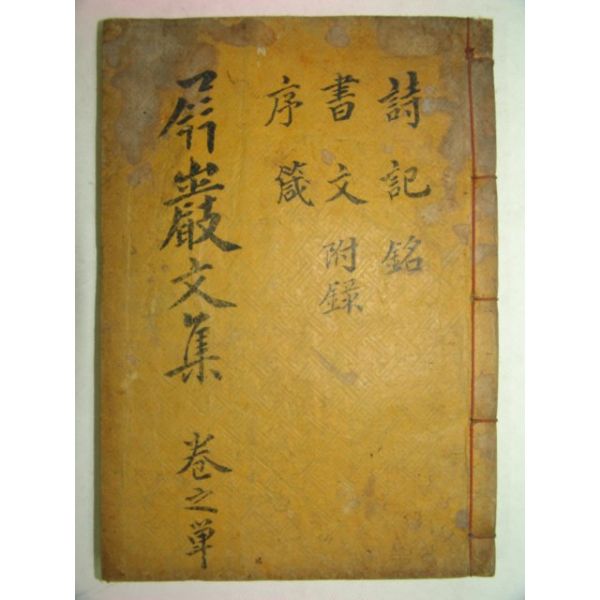 詩 記 銘
書 文 附錄
序 箴
巖文集 卷之単